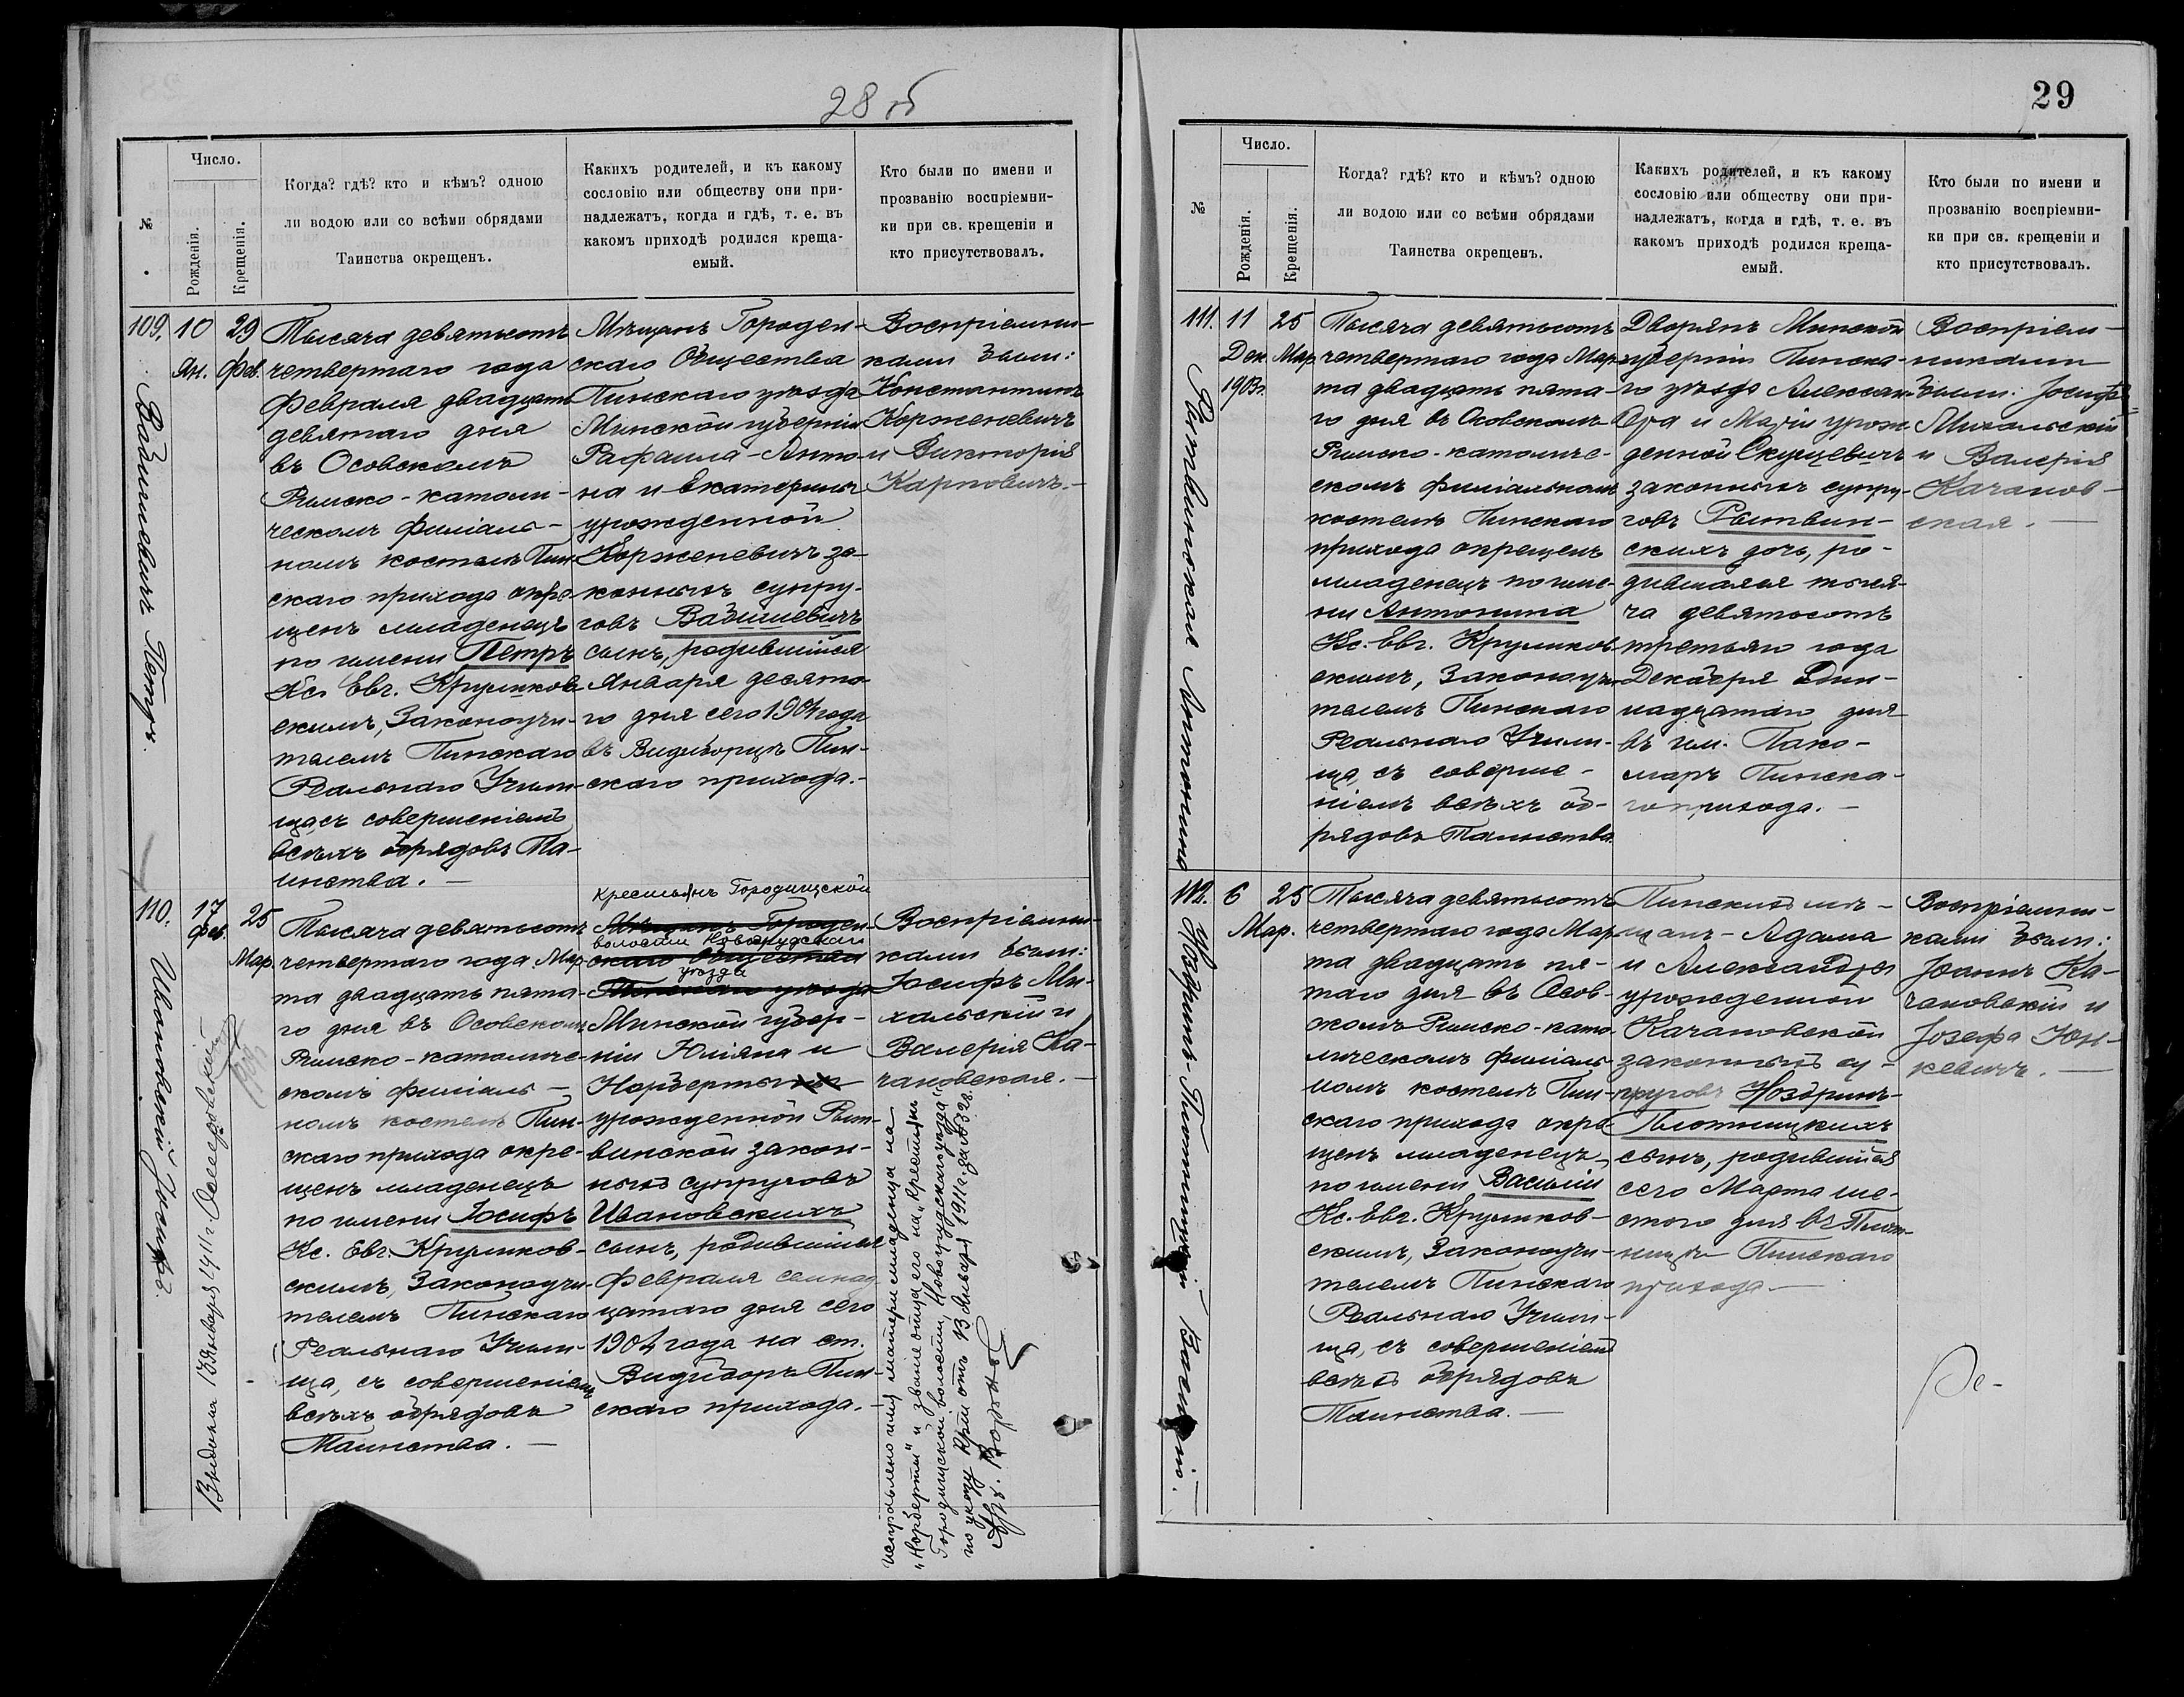 28 об
№
Число.
Рожденія.
Крещенія.
Когда? гдѣ? кто и кѣмъ? одною
ли водою или со всѣми обрядами
Таинства окрещенъ.
Какихъ родителей, и къ какому
сословію или обществу они при-
надлежатъ, когда и гдѣ, т. е. въ
какомъ приходѣ родился креща-
емый.
Кто были по имени и
прозванію воспріемни-
ки при св. крещеніи и
кто присутствовалъ.
109.
Вабишевичъ Петръ.
10
Ян.
29
Фев.
Тысяча девятьсотъ
четвертаго года
Февраля двадцать
девятаго дня
въ Осовскомъ
Римско-католи-
ческомъ филіаль-
номъ костелѣ Пин-
скаго прихода окре-
щенъ младенецъ
по имени Петръ
Кс. Евг. Круликов-
скимъ, Законоучи-
телемъ Пинскаго
Реальнаго Учили-
ща, съ совершеніемъ
всѣхъ обрядовъ Та-
инства. —
Мѣщанъ Городен-
скаго Общества
Пинскаго уѣзда
Минской губерніи
Рафаила-Анто-
на и Екатерины
урожденной
Корженевичъ за-
конныхъ супру-
говъ Вабишевичъ
сынъ, родившійся
Января десята-
го дня сего 1904 года
въ Видиборцѣ Пин-
скаго прихода. —
Воспріемни-
ками были:
Константинъ
Корженевичъ
и Викторія
Карповичъ. —
110.
Ивановскій Іосифъ.
17
Фев.
25
Мар.
Тысяча девятьсотъ
четвертаго года Мар-
та двадцать пята-
го дня въ Осовскомъ
Римско-католиче-
скомъ филіаль-
номъ костелѣ Пин-
скаго прихода окре-
щенъ младенецъ
по имени Іосифъ
Кс. Евг. Круликов-
скимъ, Законоучи-
телемъ Пинскаго
Реальнаго Учили-
ща, съ совершеніемъ
всѣхъ обрядовъ
Таинства. —
Крестьянъ Городищской
Мѣщанъ Городен-
волости Новогрудскаго
скаго Общества
уѣзда
Пинскаго уѣзда
Минской губер-
ніи Юліяна и
Норберты
урожденной Рыт-
винской закон-
ныхъ супруговъ
Ивановскихъ
сынъ, родившійся
Февраля семнад-
цатаго дня сего
1904 года на ст.
Видиборъ Пин-
скаго прихода. —
Воспріемни-
ками были:
Іосифъ Ми-
хальскій и
Валерія Ка-
чановская. —
Исправлено имя матери младенца на
„Норберты“ и званіе отца его на „Крестьянъ
Городищской волости, Новогрудскаго уѣзда“
по указу отъ 13 Января 1911 г. за № 328.
29
№
Число.
Рожденія.
Крещенія.
Когда? гдѣ? кто и кѣмъ? одною
ли водою или со всѣми обрядами
Таинства окрещенъ.
Какихъ родителей, и къ какому
сословію или обществу они при-
надлежатъ, когда и гдѣ, т. е. въ
какомъ приходѣ родился креща-
емый.
Кто были по имени и
прозванію воспріемни-
ки при св. крещеніи и
кто присутствовалъ.
111.
Рытвинская Антонина
11
Дек.
1903 г.
25
Мар.
Тысяча девятьсотъ
четвертаго года Мар-
та двадцать пята-
го дня въ Осовскомъ
Римско-католиче-
скомъ филіальномъ
костелѣ Пинскаго
прихода окрещенъ
младенецъ по име-
ни Антонина
Кс. Евг. Круликов-
скимъ, Законоучи-
телемъ Пинскаго
Реальнаго Учили-
ща, съ соверше-
ніемъ всѣхъ об-
рядовъ Таинства.
Дворянъ Минской
губерніи Пинска-
го уѣзда Алексан-
дра и Маріи урож-
денной
законныхъ супру-
говъ Рытвин-
скихъ дочь, ро-
дившаяся тыся-
ча девятьсотъ
третьяго года
Декабря один-
надцатаго дня
въ им. Пако-
марѣ Пинска-
го прихода. —
Воспріем-
никами
были: Іосифъ
Михальскій
и Валерія
Качанов-
ская. —
112.
Ноздринъ-Плотницкій Василій.
6
25
Мар.
Тысяча девятьсотъ
четвертаго года Мар-
та двадцать пя-
таго дня въ Осов-
скомъ Римско-като-
лическомъ филіаль-
номъ костелѣ Пин-
скаго прихода окре-
щенъ младенецъ
по имени Василій
Кс. Евг. Круликов-
скимъ, Законоучи-
телемъ Пинскаго
Реальнаго Учили-
ща, съ совершеніемъ
всѣхъ обрядовъ
Таинства. —
Пинскихъ мѣ-
щанъ - Адама
и Александры
урожденной
Качановской
законныхъ су-
пруговъ Ноздринъ-
Плотницкихъ
сынъ, родившійся
сего Марта ше-
стого дня въ Плот-
ницѣ Пинскаго
прихода —
Воспріемни-
ками были:
Іоаннъ Ка-
чановскій и
Іозефа Юн-
кевичъ. —